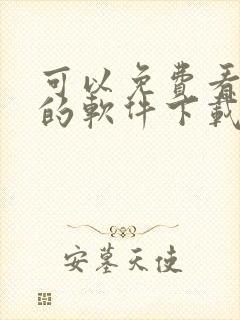 可以免费看
的軟件下載
安墓天使